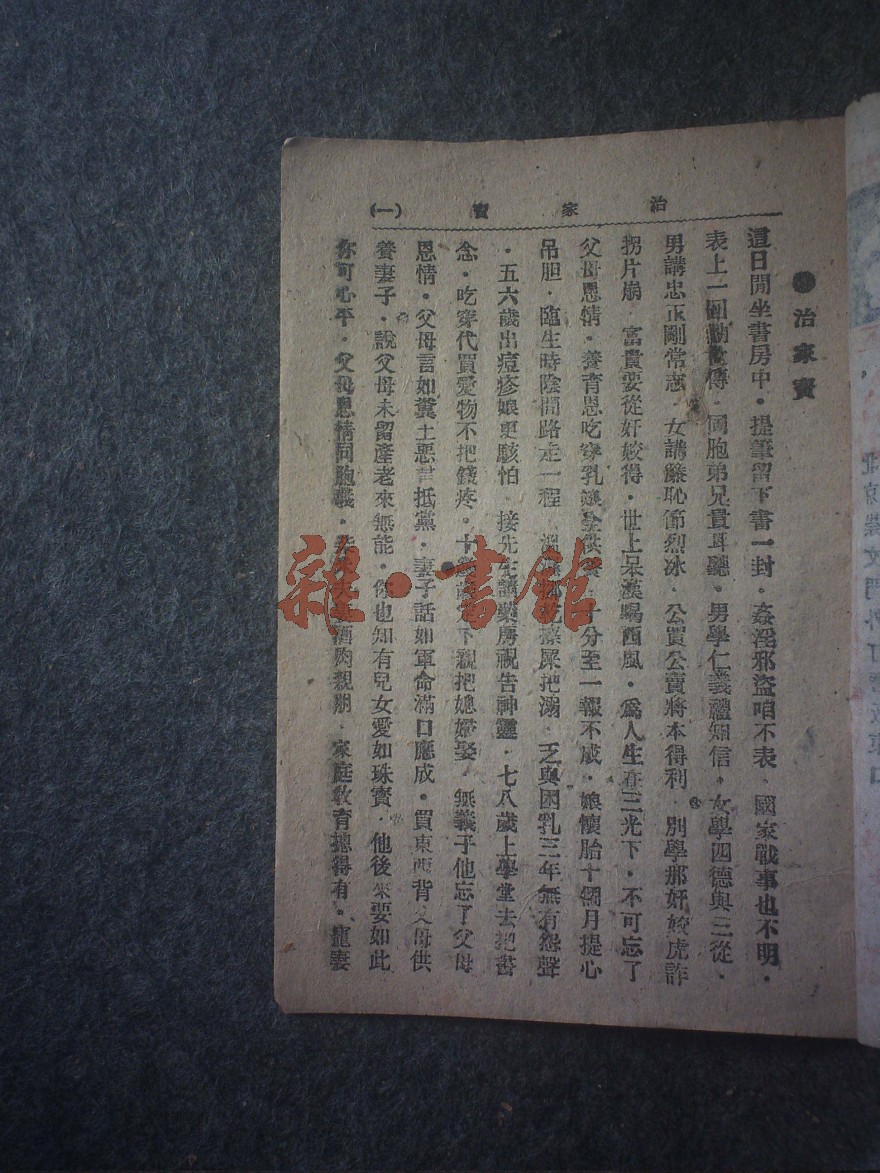 治家寶
(一)
治家寶
這日閒坐書房中·提筆留下書一封·姦淫邪盜咱不表·國家戰事也不明·
表上一回勸世傳·同胞弟兄貴耳聽·男學仁義禮知信·女學四德與三從·
男講忠正剛常志·女講廉恥節烈冰·公買公賣將本得利·別學那奸姣虎詐
拐片崩·富貴要從奸姣得·世上呆漢喝西風·爲人生在三光下·不可忘了
父母恩情·養育恩吃穿乳·十分至一報不成·娘懷胎十個月提心
吊胆·臨生時陰間路走一程·屎把溺·乏與困乳三年無有怨聲
·五六歲出痘疹娘更駭怕·接先生講藥房視告神靈·七八歲上學堂去把書
念·吃穿代買愛物不把錢疼·十下親把媳婦娶·無義子他忘了父母
恩情·父母言如糞土惡言抵黨·妻子話如軍命滿口應成·買東西背父母供
養妻子·說父母未留產老來無能·你也知有兒女愛如珠寶·他後來要如此
你可心平·父母恩情同胞義·夫妻酒肉親朋·家庭敎育揔得有·寵妻
雜·書館